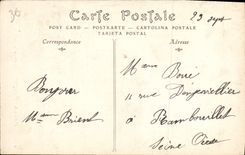 30
Carte Postale
23 Sept
POST CARD - POSTKARTE - CARTOLINA POSTALE
TARJETA POSTAL
Correspondance
Adresse
Bonjour
Mme Brient
Mme
11 rue
à Rambouillet
Seine